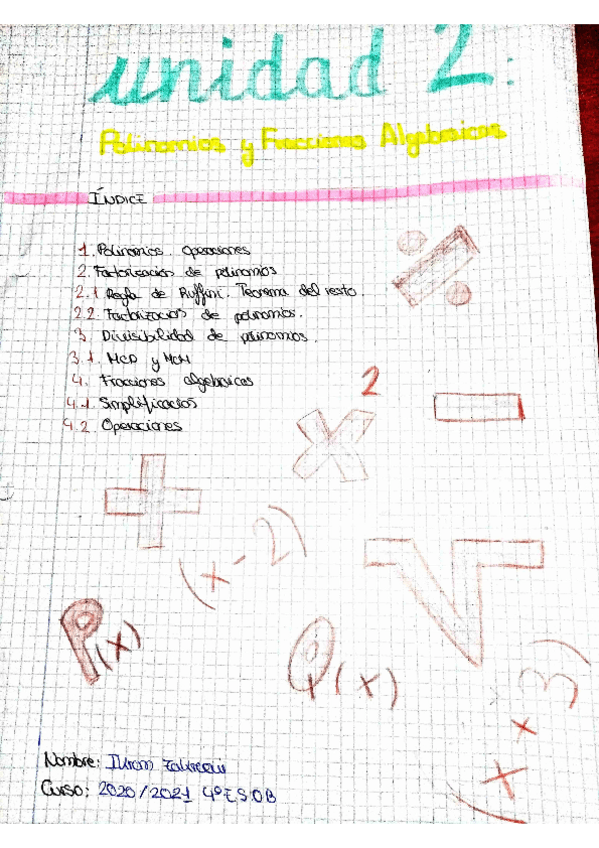 unidad 2:
Polinomios y Fracciones Algebraicas
ÍNDICE
1. Polinomios. Operaciones
2. Factorización de polinomios
2.1. Regla de Ruffini. Teorema del resto.
2.2. Factorización de polinomios.
3. Divisibilidad de polinomios.
3.1. MCD y MCM
4. Fracciones algebraicas
4.1. Simplificación
4.2. Operaciones
÷
x 2
-
+
(x-2)
√
P(x)
Q(x)
(x + 3)
Nombre:
Curso: 2020/2021 4ºESOB